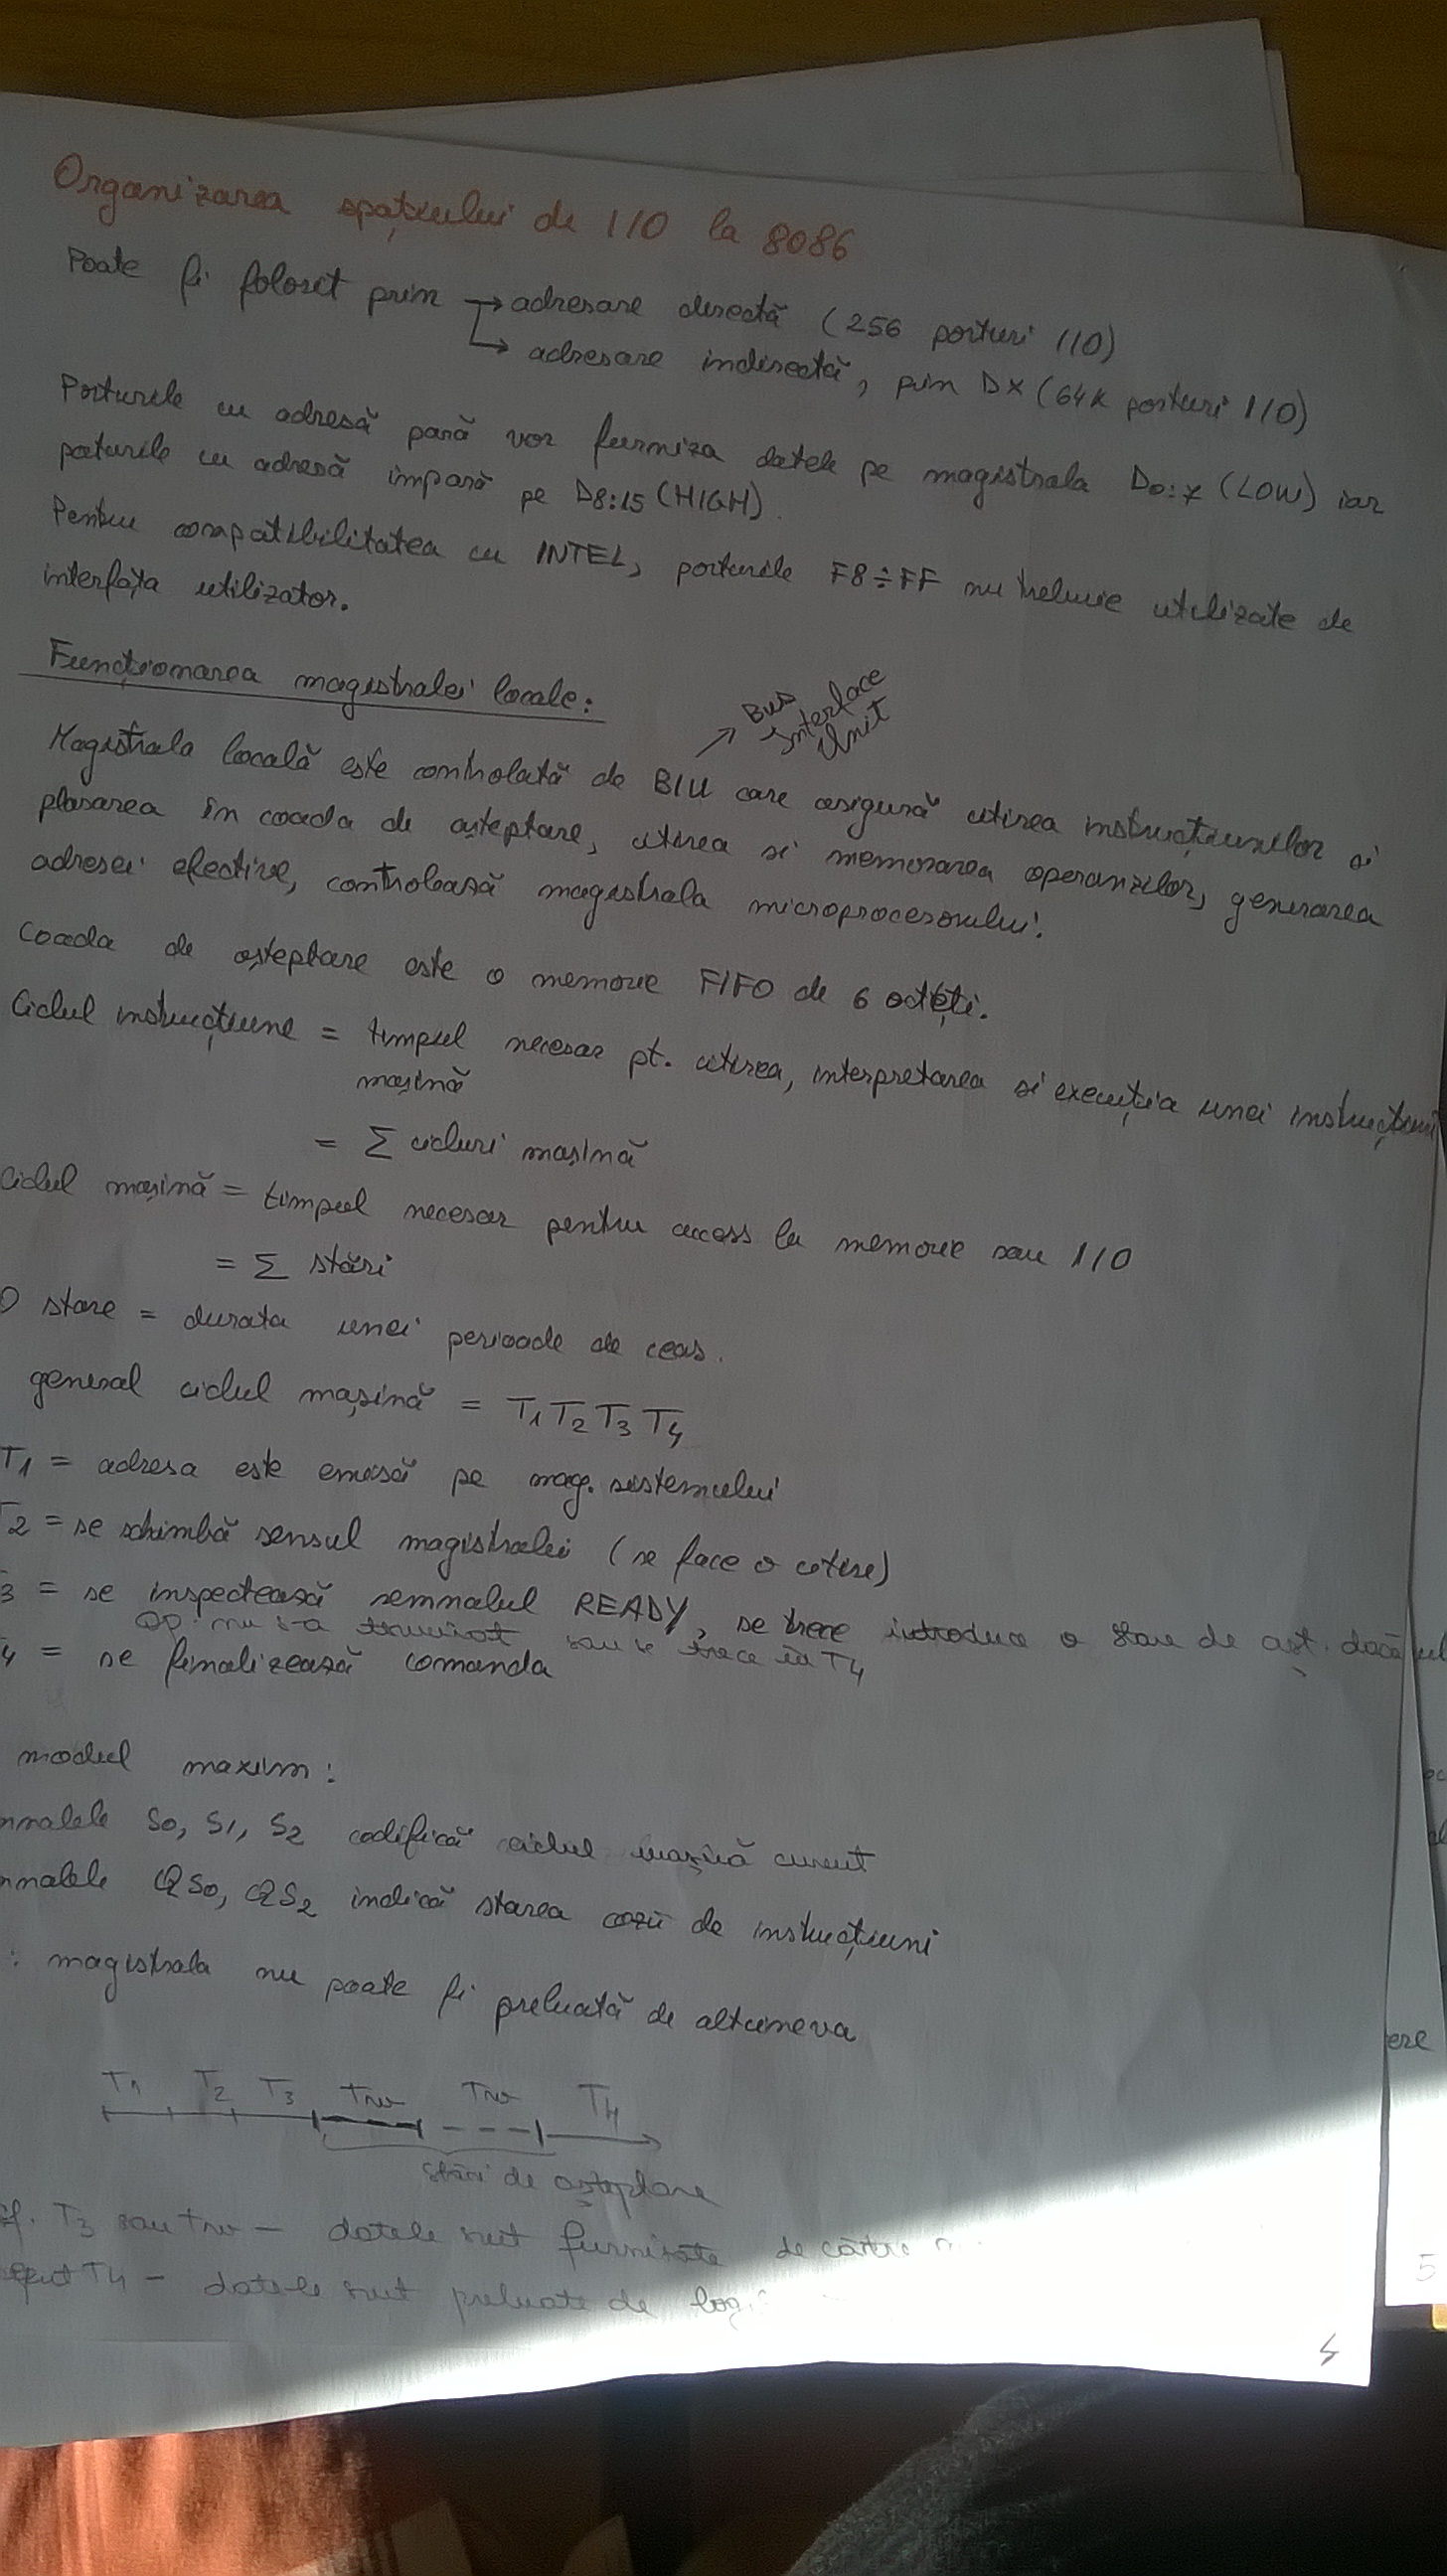 Organizarea spațiului de I/O la 8086
Poate fi folosit prin → adresare directă (256 porturi I/O)
↳ adresare indirectă, prin DX (64K porturi I/O)
Porturile cu adresă pară vor furniza datele pe magistrala D0:7 (LOW) iar
porturile cu adresă impară pe D8:15 (HIGH).
Pentru compatibilitatea cu INTEL, porturile F8÷FF nu trebuie utilizate de
interfața utilizator.
Funcționarea magistralei locale:
Bus
Interface
Unit
Magistrala locală este controlată de BIU care asigură citirea instrucțiunilor și
plasarea în coada de așteptare, citirea si memorarea operanzilor, generarea
adresei efective, controlează magistrala microprocesorului.
Coada de așteptare este o memorie FIFO de 6 octeți.
Ciclul instrucțiune = timpul necesar pt. citirea, interpretarea si execuția unei instrucțiuni
mașină
= Σ cicluri mașină
Ciclul mașină = timpul necesar pentru access la memorie sau I/O
= Σ stări
O stare = durata unei perioade de ceas.
general ciclul mașină = T1 T2 T3 T4
T1 = adresa este emisă pe mag. sistemului
T2 = se schimbă sensul magistralei (se face o citire)
3 = se inspectează semnalul READY, se trece introduce o stare de așt. dacă ul
op. nu s-a terminat sau se trece in T4
4 = se finalizează comanda
modul maxim:
mnalele S0, S1, S2 codifică ciclul mașină curent
mnalele QS0, QS2 indică starea cozii de instrucțiuni
: magistrala nu poate fi preluată de altcineva
T1 T2 T3 Tw Tw T4
stări de așteptare
sf. T3 sau Tw – datele sunt furnizate de către
T4 – datele sunt preluate de
4
5
ere